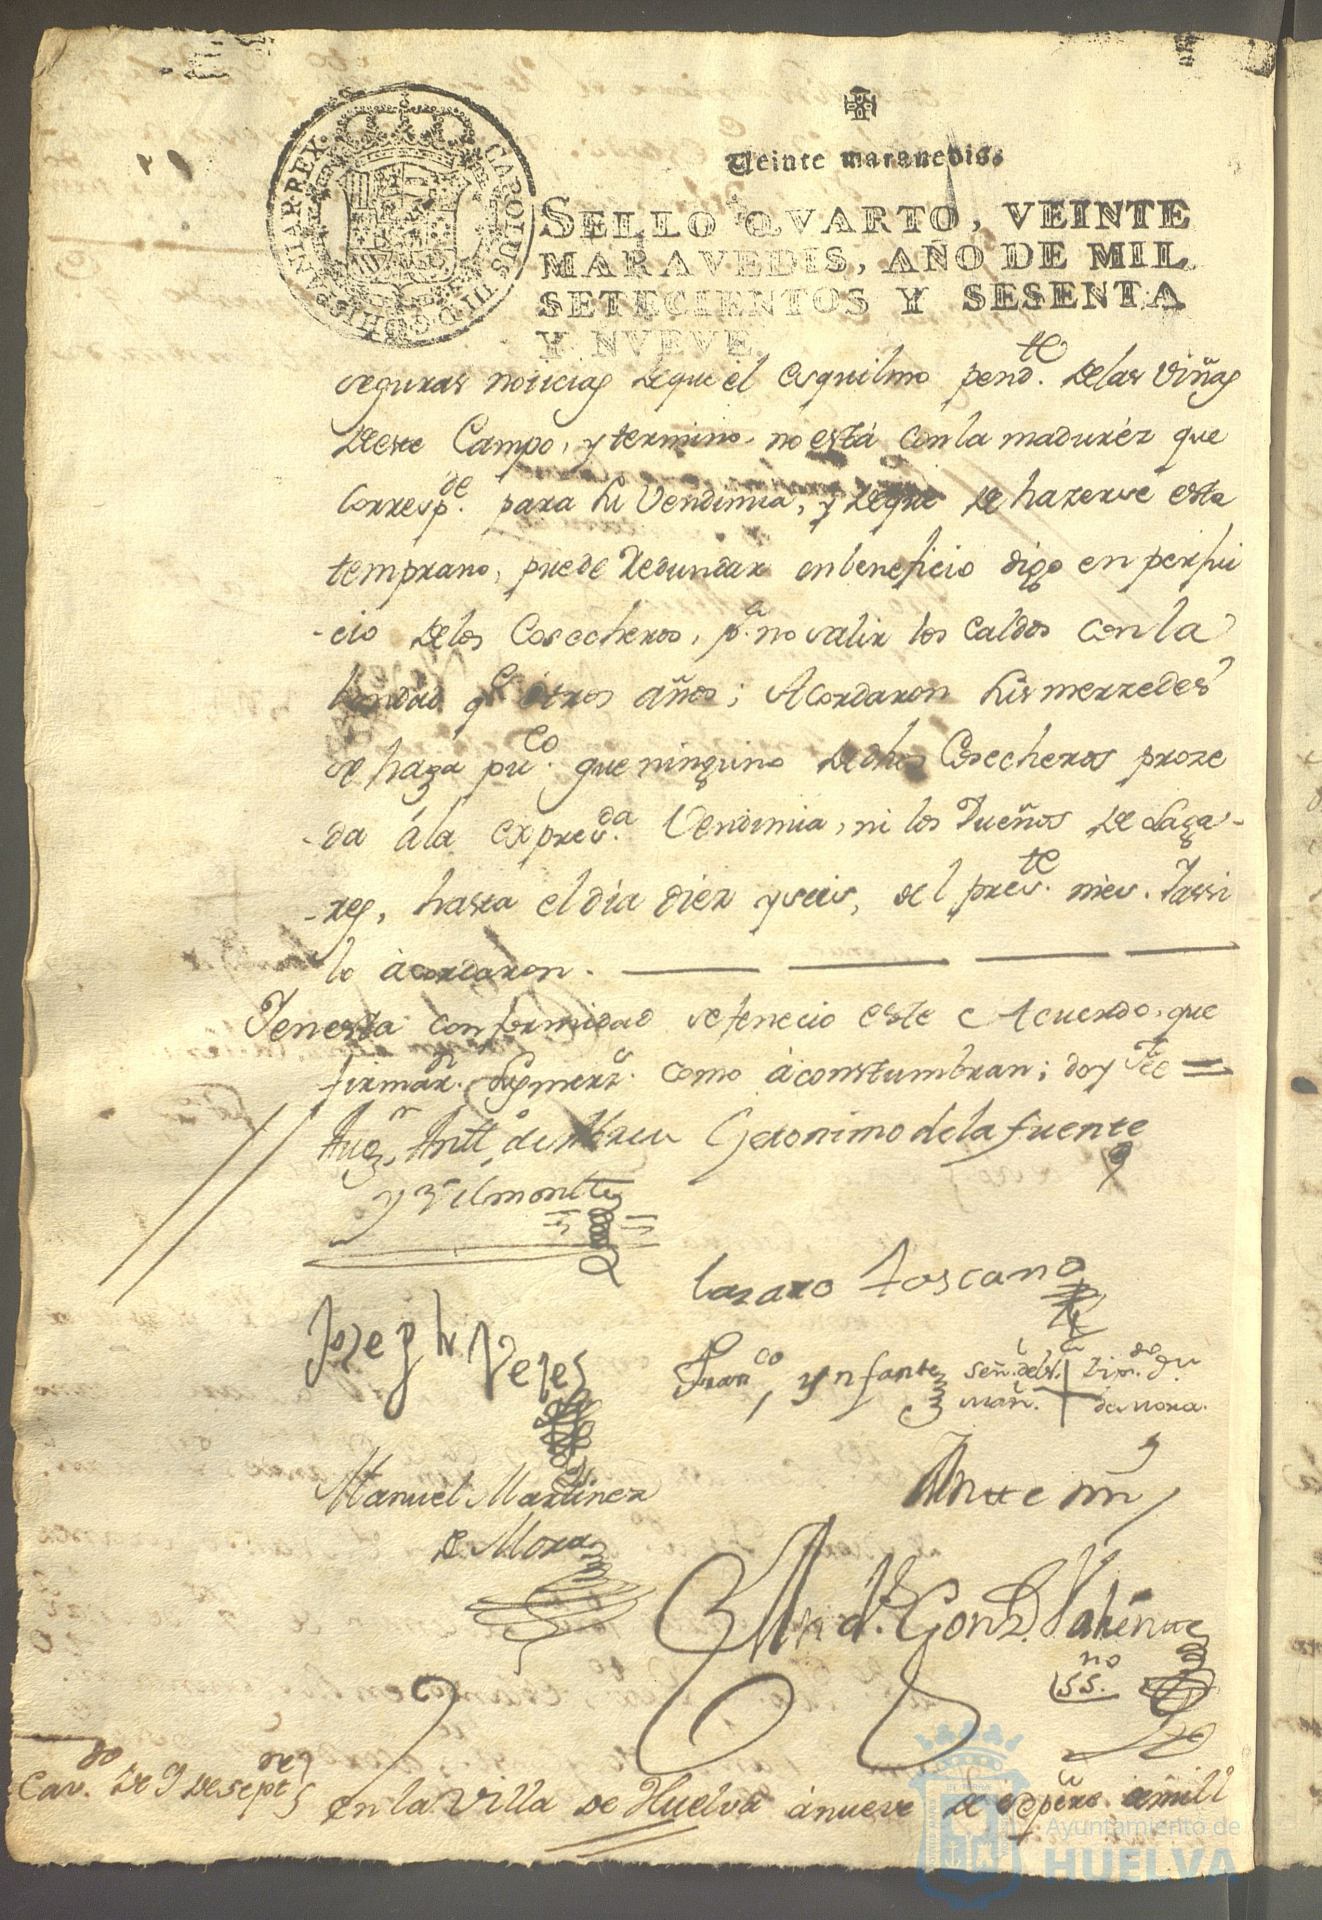 Veinte maravedis.
SELLO QVARTO, VEINTE
MARAVEDIS, AÑO DE MIL
SETECIENTOS Y SESENTA
Y NVEVE.
CAROLUS III D G HISPANIAR REX
seguras noticias deque el esquilmo pend.te delas Viñas
deeste Campo, y termino no está con la maduréz que
corresp.de para su Vendimia, y deque de hazerse esta
temprano, puede redundar en beneficio digo en perjui
-cio delos Cosecheros, p.a no salir los Caldos con la
bondad q.e otros años; Acordaron sus merzedes
se haga pu.co que ninguno dedhos Cosecheros proze
-da ála expres.da Vendimia, ni los Dueños de Laga-
-res, hasta el día diez y seis, del pres.te mes. Yassi
lo ácordaron.
Yenesta conformidad se fenecio este Acuerdo, que
firmar.n sus merz.s como áconstumbran; doy fee =
Aug.n Antt.o de Abreu Geronimo de la fuente
y
Lazaro Toscano
Joseph Velez
Fran.co Ynfante señ. del + Dim.do
mañ. de mora.
Manuel Martinez
de Mora
Antte mi
And.s Gonz.
ss.no
Cav.do de 9 de sept.re
en la Villa de Huelva ánueve de sepre. demill
Ayuntamiento de
HUELVA